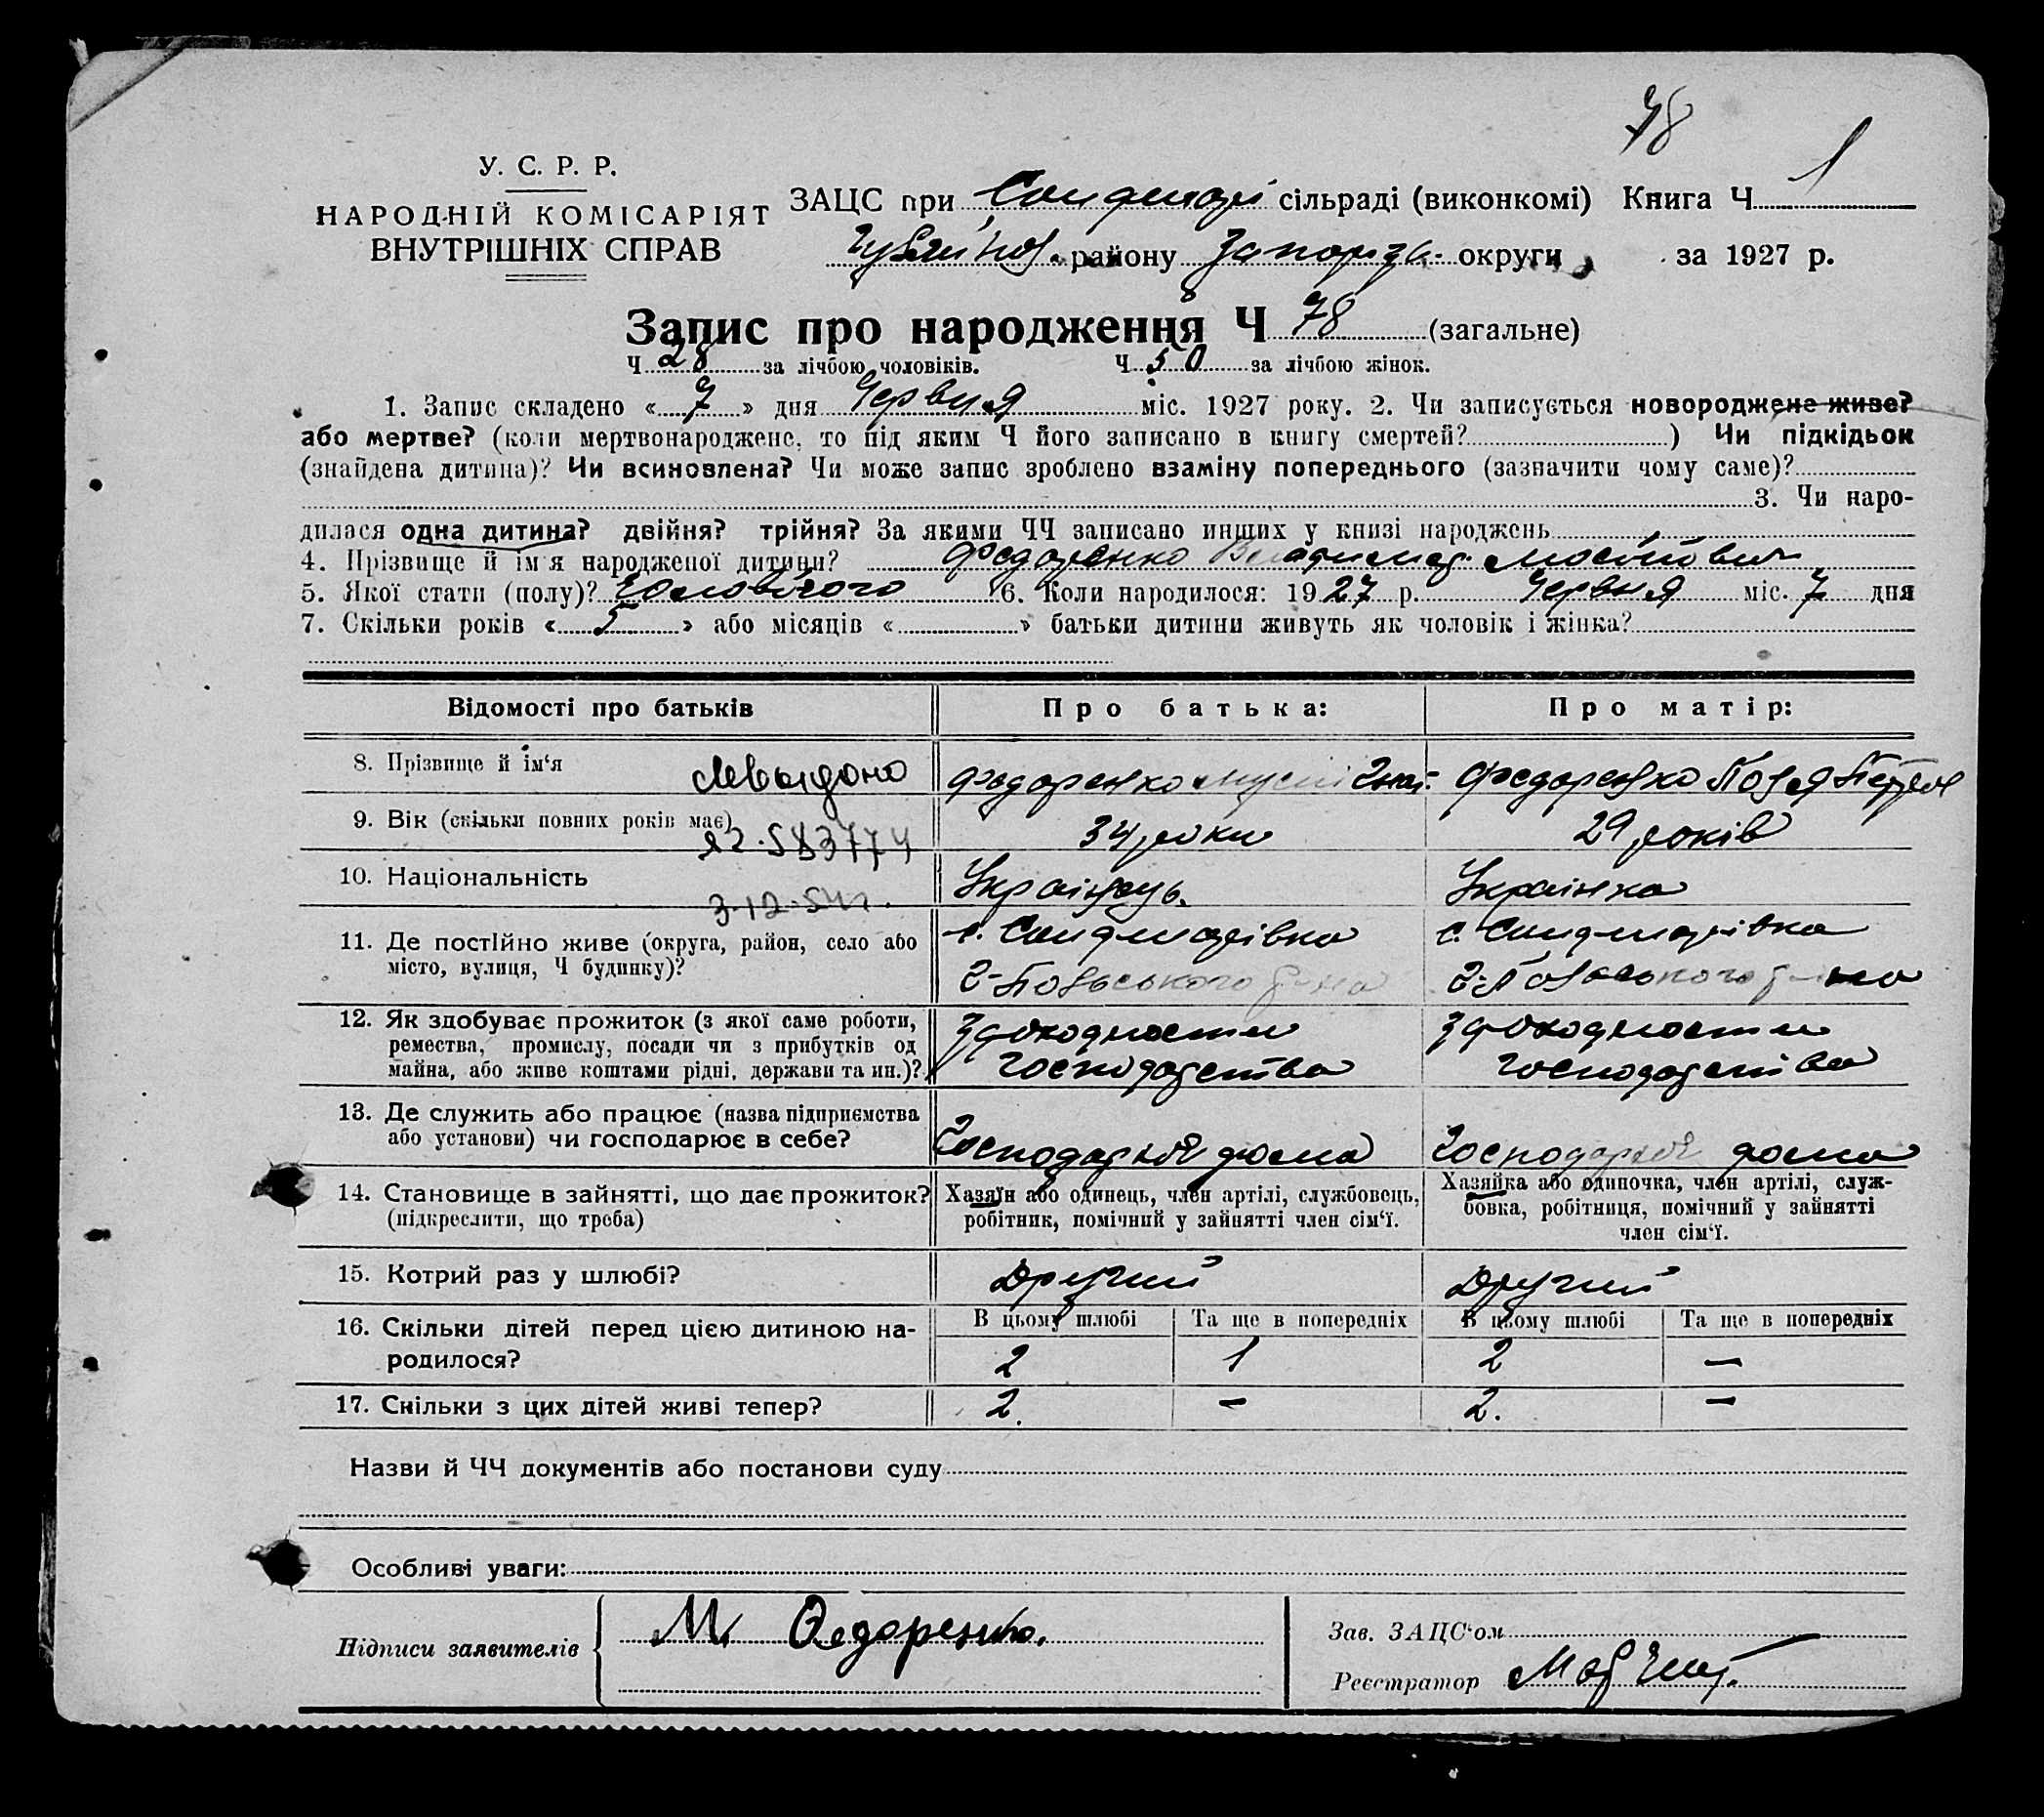 78
У. С. Р. Р.
НАРОДНІЙ КОМІСАРІЯТ
ВНУТРІШНІХ СПРАВ
ЗАЦС при сільраді (виконкомі) Книга Ч 1
району Запоріз. округи за 1927 р.
Запис про народження Ч 78 (загальне)
Ч 28 за лічбою чоловіків. Ч 50 за лічбою жінок.
1. Запис складено « 7 » дня Червня міс. 1927 року. 2. Чи записується новороджене живе?
або мертве? (коли мертвонароджене, то під яким Ч його записано в книгу смертей? ) Чи підкідьок
(знайдена дитина)? Чи всиновлена? Чи може запис зроблено взаміну попереднього (зазначити чому саме)?
3. Чи наро-
дилася одна дитина? двійня? трійня? За якими ЧЧ записано инших у книзі народжень
4. Прізвище й ім'я народженої дитини? Федоренко
5. Якої стати (полу)? 6. Коли народилося: 1927 р. Червня міс. 7 дня
7. Скільки років « 5 » або місяців « » батьки дитини живуть як чоловік і жінка?
Відомості про батьків Про батька: Про матір:
8. Прізвище й ім'я Федоренко Федоренко
9. Вік (скільки повних років має) 34 роки 29 років
10. Національність Українець. Українка
3-12-54
11. Де постійно живе (округа, район, село або
місто, вулиця, Ч будинку)?
12. Як здобуває прожиток (з якої саме роботи,
ремества, промислу, посади чи з прибутків од
майна, або живе коштами рідні, держави та ин.)?
З доходности господарства З доходности господарства
13. Де служить або працює (назва підприємства
або установи) чи господарює в себе?
дома дома
14. Становище в зайнятті, що дає прожиток?
(підкреслити, що треба)
Хазяїн або одинець, член артілі, службовець,
робітник, помічний у зайнятті член сім'ї.
Хазяйка або одиночка, член артілі, служ-
бовка, робітниця, помічний у зайнятті
член сім'ї.
15. Котрий раз у шлюбі? Другий Другий
16. Скільки дітей перед цією дитиною на-
родилося?
В цьому шлюбі Та ще в попередніх В цьому шлюбі Та ще в попередніх
2 1 2 —
17. Скільки з цих дітей живі тепер? 2. — 2. —
Назви й ЧЧ документів або постанови суду
Особливі уваги:
Підписи заявителів М. Федоренко.
Зав. ЗАЦС'ом
Реєстратор